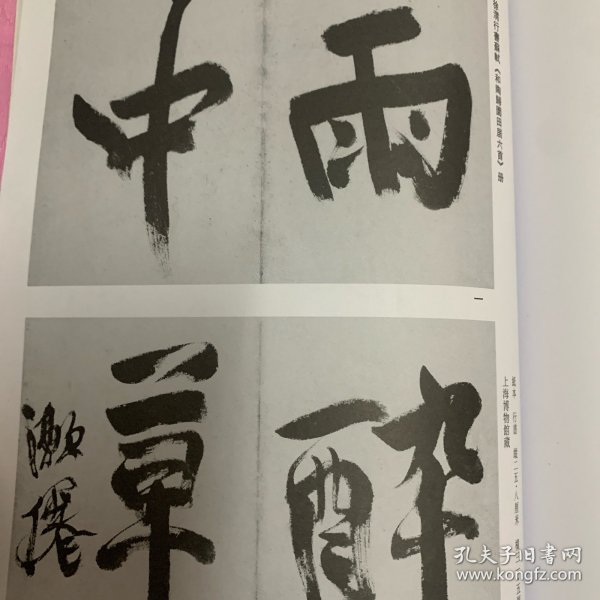 徐渭行書蘇軾《和陶歸園田居六首》册
雨
中
一
醉
草
漱僊
紙本 行書 縱二五·八厘米
上海博物館藏
孔夫子旧书网
www.kongfz.com